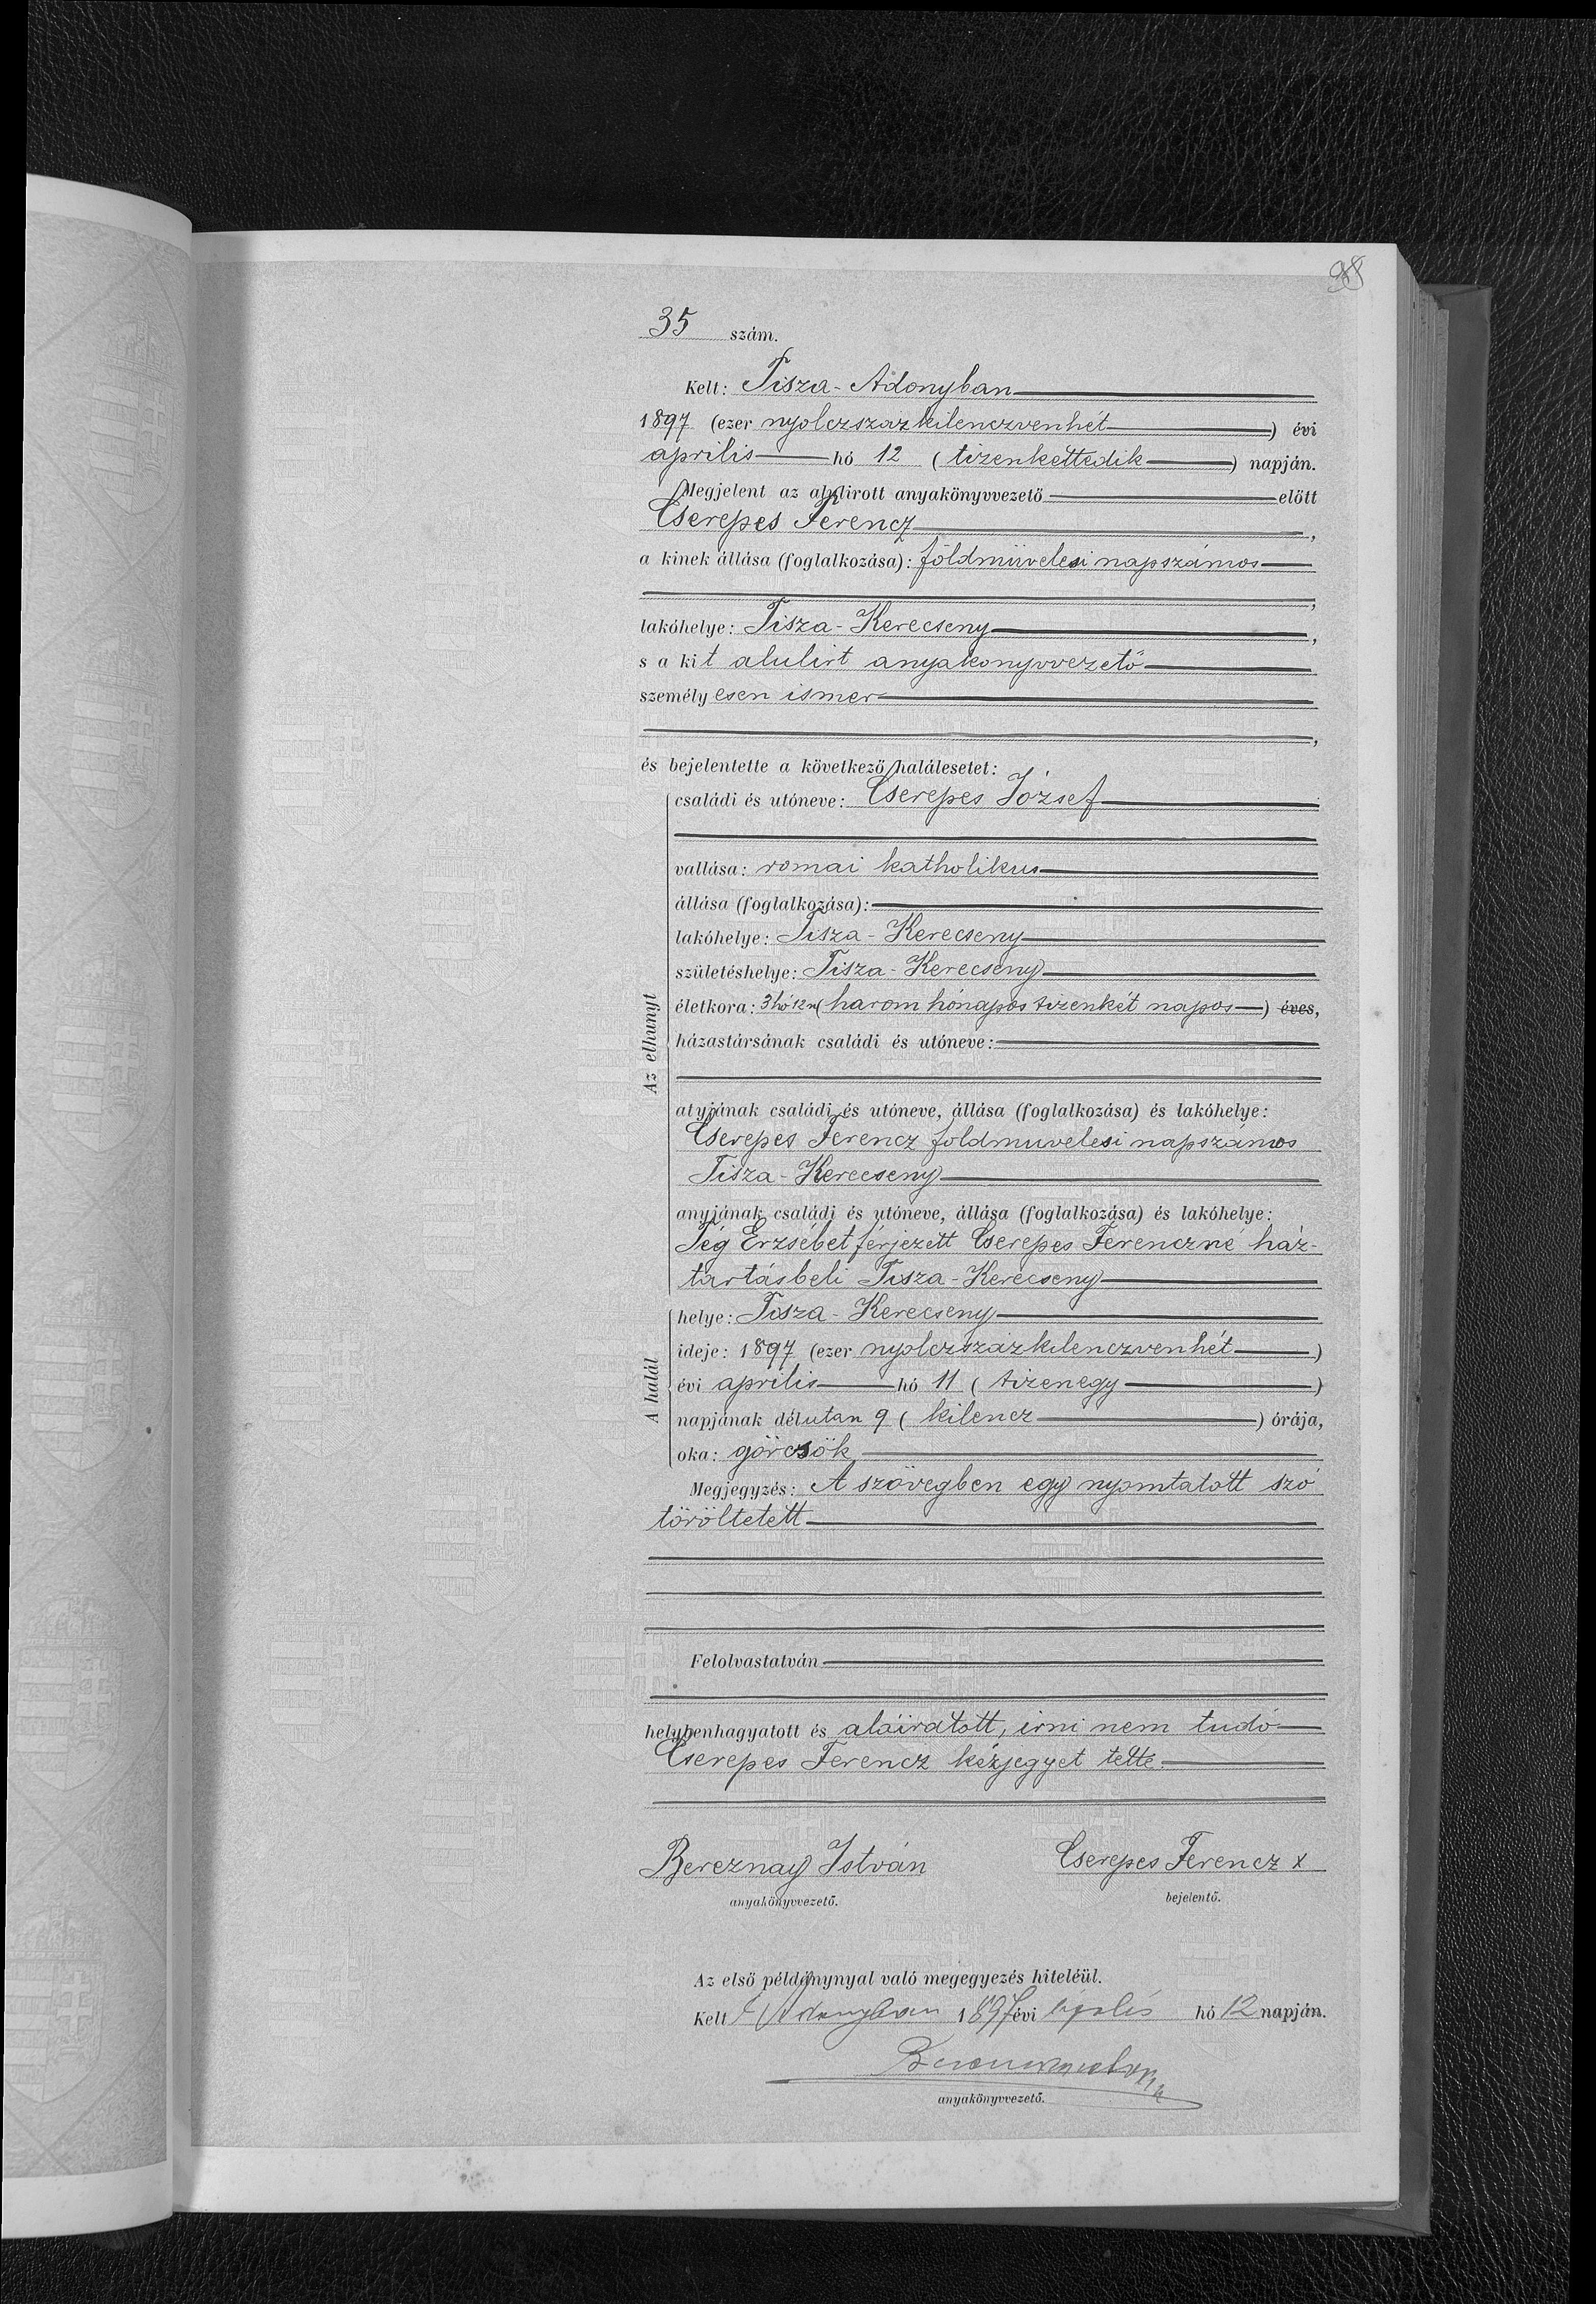 98
35 szám.
Kelt: Tisza-Adonyban
1897 (ezer nyolczszázkilenczvenhét) évi
április hó 12 (tizenkettedik) napján.
Megjelent az alulirott anyakönyvvezető előtt
Cserepes Ferencz,
a kinek állása (foglalkozása): földmüvelesi napszámos
,
lakóhelye: Tisza-Kerecseny,
s a kit alulirt anyakonyvvezető
személyesen ismer
,
és bejelentette a következő halálesetet:
Az elhunyt
családi és utóneve: Cserepes József
vallása: romai katholikus
állása (foglalkozása):
lakóhelye: Tisza-Kerecseny
születéshelye: Tisza-Kerecseny
életkora: 3 hó 12 n (harom hónapos tizenkét napos) éves,
házastársának családi és utóneve:
atyjának családi és utóneve, állása (foglalkozása) és lakóhelye:
Cserepes Ferencz földmuvelesi napszámos
Tisza-Kerecseny
anyjának családi és utóneve, állása (foglalkozása) és lakóhelye:
Tég Erzsébet férjezett Cserepes Ferenczné ház-
tartásbeli Tisza-Kerecseny
A halál
helye: Tisza-Kerecseny
ideje: 1897 (ezer nyolczszázkilenczvenhét)
évi április hó 11 (tizenegy)
napjának délutan 9 (kilencz) órája,
oka: görcsök
Megjegyzés: A szövegben egy nyomtatott szó
töröltetett
Felolvastatván
helybenhagyatott és aláiratott, irni nem tudó
Cserepes Ferencz kézjegyet tette.
Bereznay István Cserepes Ferencz x
anyakönyvvezető. bejelentő.
Az első példánynyal való megegyezés hiteléül.
Kelt T Adonyban 1897 évi április hó 12 napján.
anyakönyvvezető.